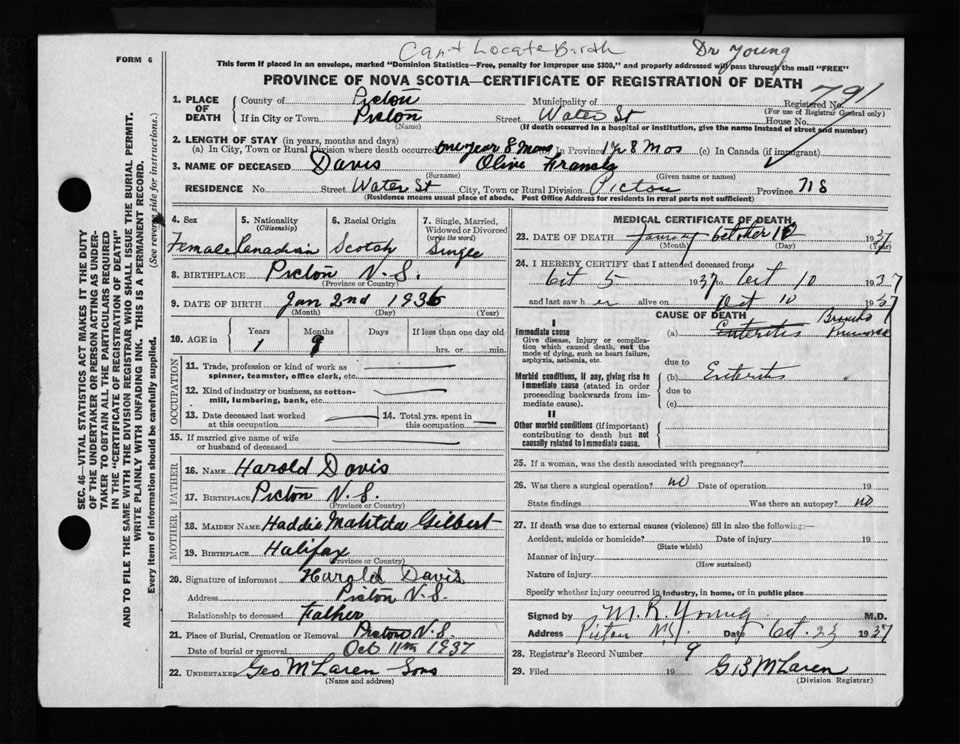 Can't Locate Birth Dr Young
FORM 6
This form if placed in an envelope, marked "Dominion Statistics—Free, penalty for improper use $300," and properly addressed will pass through the mail "FREE"
PROVINCE OF NOVA SCOTIA—CERTIFICATE OF REGISTRATION OF DEATH
791
1. PLACE OF DEATH County of Pictou Municipality of Registered No.
(For use of Registrar General only)
If in City or Town Pictou Street Water St House No.
(Name) (If death occurred in a hospital or institution, give the name instead of street and number)
2. LENGTH OF STAY (in years, months and days)
(a) In City, Town or Rural Division where death occurred one year 8 mons In Province 1 yr 8 mos (c) In Canada (if immigrant)
3. NAME OF DECEASED Davis Olive
(Surname) (Given name or names)
RESIDENCE No. Street Water St City, Town or Rural Division Pictou Province N S
(Residence means usual place of abode. Post Office Address for residents in rural parts not sufficient)
4. Sex 5. Nationality (Citizenship) 6. Racial Origin 7. Single, Married, Widowed or Divorced (write the word)
Female Canadian Scotch Single
8. BIRTHPLACE Pictou N. S.
(Province or Country)
9. DATE OF BIRTH Jan 2nd 1936
(Month) (Day) (Year)
10. AGE in Years Months Days If less than one day old
1 9 hrs. or min.
OCCUPATION
11. Trade, profession or kind of work as spinner, teamster, office clerk, etc.
12. Kind of industry or business, as cotton-mill, lumbering, bank, etc.
13. Date deceased last worked at this occupation 14. Total yrs. spent in this occupation
15. If married give name of wife or husband of deceased
FATHER
16. NAME Harold Davis
17. BIRTHPLACE Pictou N. S.
MOTHER
18. MAIDEN NAME Haddie Matilda Gilbert
19. BIRTHPLACE Halifax
20. Signature of informant Harold Davis
Address Pictou N. S.
Relationship to deceased Father
21. Place of Burial, Cremation or Removal Pictou N. S.
Date of burial or removal Oct 11th 1937
22. UNDERTAKER Geo McLaren Sons
(Name and address)
MEDICAL CERTIFICATE OF DEATH
23. DATE OF DEATH October 10 1937
(Month) (Day) (Year)
24. I HEREBY CERTIFY that I attended deceased from
Oct 5 1937 to Oct 10 1937
and last saw h er alive on Oct 10 1937
CAUSE OF DEATH
I
Immediate cause (a) Enteritis Broncho
Give disease, injury or complication which caused death, not the mode of dying, such as heart failure, asphyxia, asthenia, etc.
due to
Morbid conditions, if any, giving rise to immediate cause (stated in order proceeding backwards from immediate cause). (b) Enteritis
due to
(c)
II
Other morbid conditions (if important) contributing to death but not causally related to immediate cause.
25. If a woman, was the death associated with pregnancy?
26. Was there a surgical operation? no Date of operation 19
State findings Was there an autopsy? no
27. If death was due to external causes (violence) fill in also the following:—
Accident, suicide or homicide? Date of injury 19
(State which)
Manner of injury
(How sustained)
Nature of injury
Specify whether injury occurred in industry, in home, or in public place
Signed by M. R. Young M.D.
Address Pictou NS Date Oct. 23 1937
28. Registrar's Record Number 9
29. Filed 19 G B McLaren
(Division Registrar)
SEC. 46—VITAL STATISTICS ACT MAKES IT THE DUTY OF THE UNDERTAKER OR PERSON ACTING AS UNDERTAKER TO OBTAIN ALL THE PARTICULARS REQUIRED IN THE "CERTIFICATE OF REGISTRATION OF DEATH"
AND TO FILE THE SAME WITH THE DIVISION REGISTRAR WHO SHALL ISSUE THE BURIAL PERMIT.
WRITE PLAINLY WITH UNFADING INK. THIS IS A PERMANENT RECORD.
Every item of information should be carefully supplied. (See reverse side for instructions.)